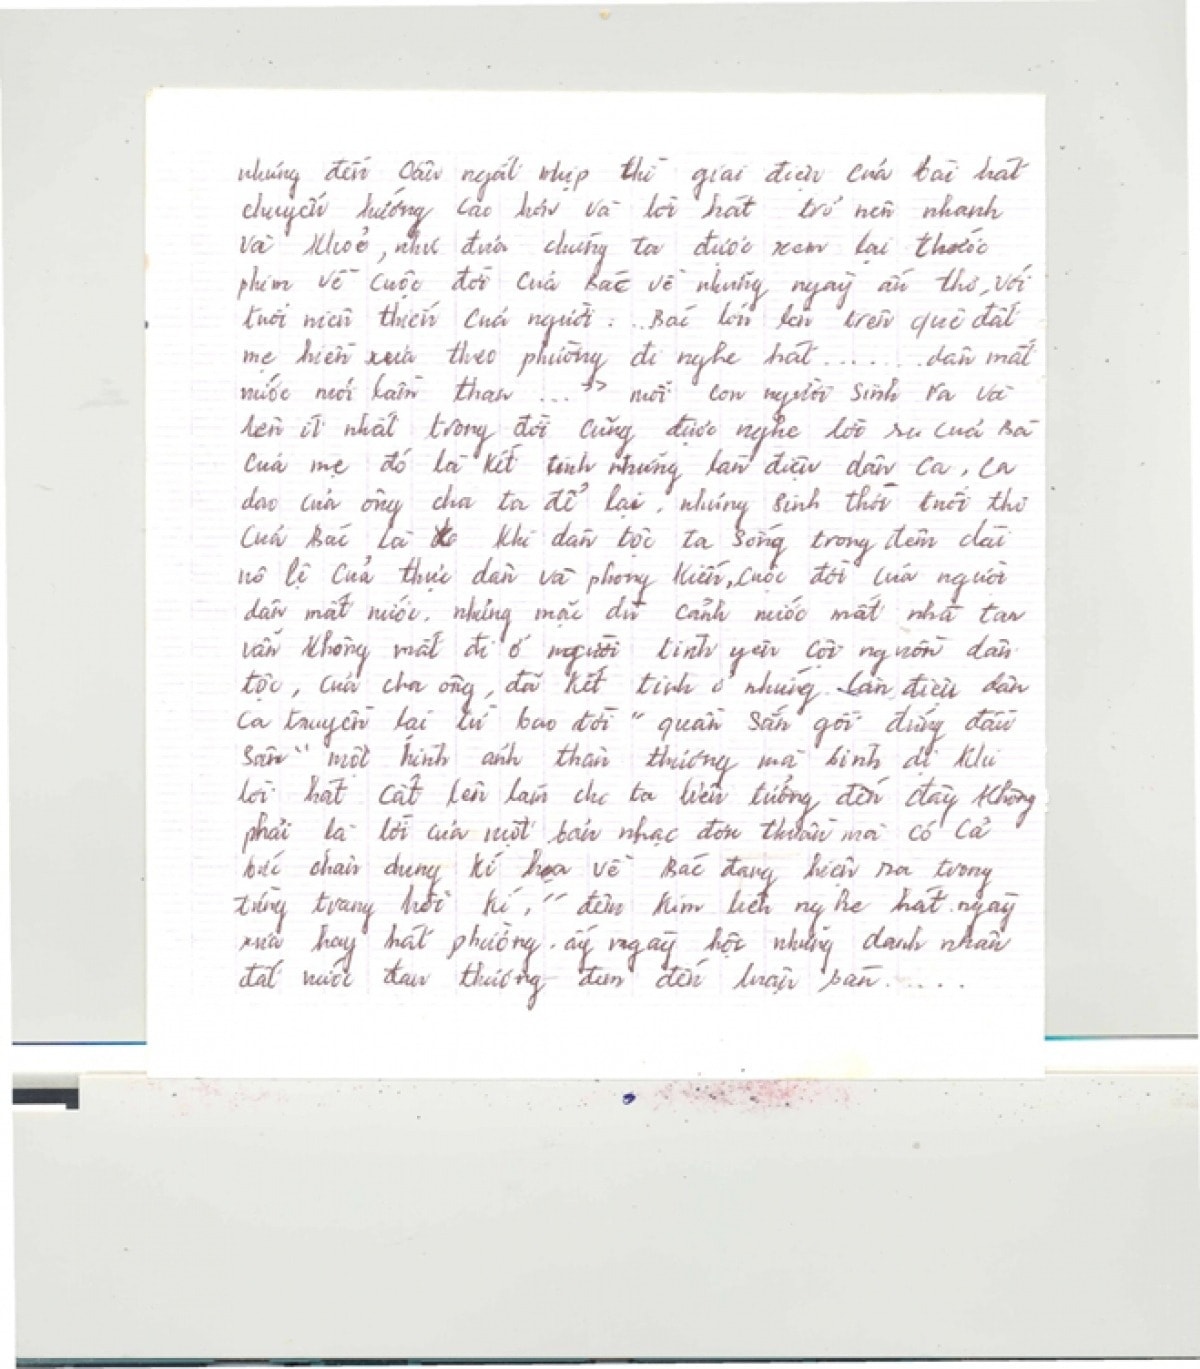 nhưng đến câu ngắt nhịp thì giai điệu của bài hát
chuyển hướng cao hơn và lời hát trở nên nhanh
và khoẻ, như đưa chúng ta được xem lại thước
phim về cuộc đời của Bác về những ngày ấu thơ, với
tuổi niên thiếu của người: ..Bác lớn lên trên quê đất
mẹ hiền xưa theo phường đi nghe hát ........ dân mất
nước nơi lầm than ..." mỗi con người sinh ra và
lên ít nhất trong đời cũng được nghe lời ru của Bà
của mẹ đó là kết tinh những làn điệu dân ca, ca
dao của ông cha ta để lại, nhưng sinh thời tuổi thơ
của Bác là khi dân tộc ta sống trong đêm dài
nô lệ của thực dân và phong kiến, cuộc đời của người
dân mất nước. nhưng mặc dù cảnh nước mất nhà tan
vẫn không mất đi ở người tình yêu cội nguồn dân
tộc, của cha ông, đã kết tinh ở những làn điệu dân
ca truyền lại từ bao đời " quần sắn gối đứng đầu
sân" một hình ảnh thân thương mà bình dị khi
lời hát cất lên làm cho ta liên tưởng đến đây không
phải là lời của một bản nhạc đơn thuần mà có cả
bức chân dung kí họa về Bác đang hiện ra trong
từng trang hồi kí, " đêm kim liên nghe hát ngày
xưa hay hát phường. ấy ngày hội những danh nhân
đất nước đau thương đưa đến luận bàn......